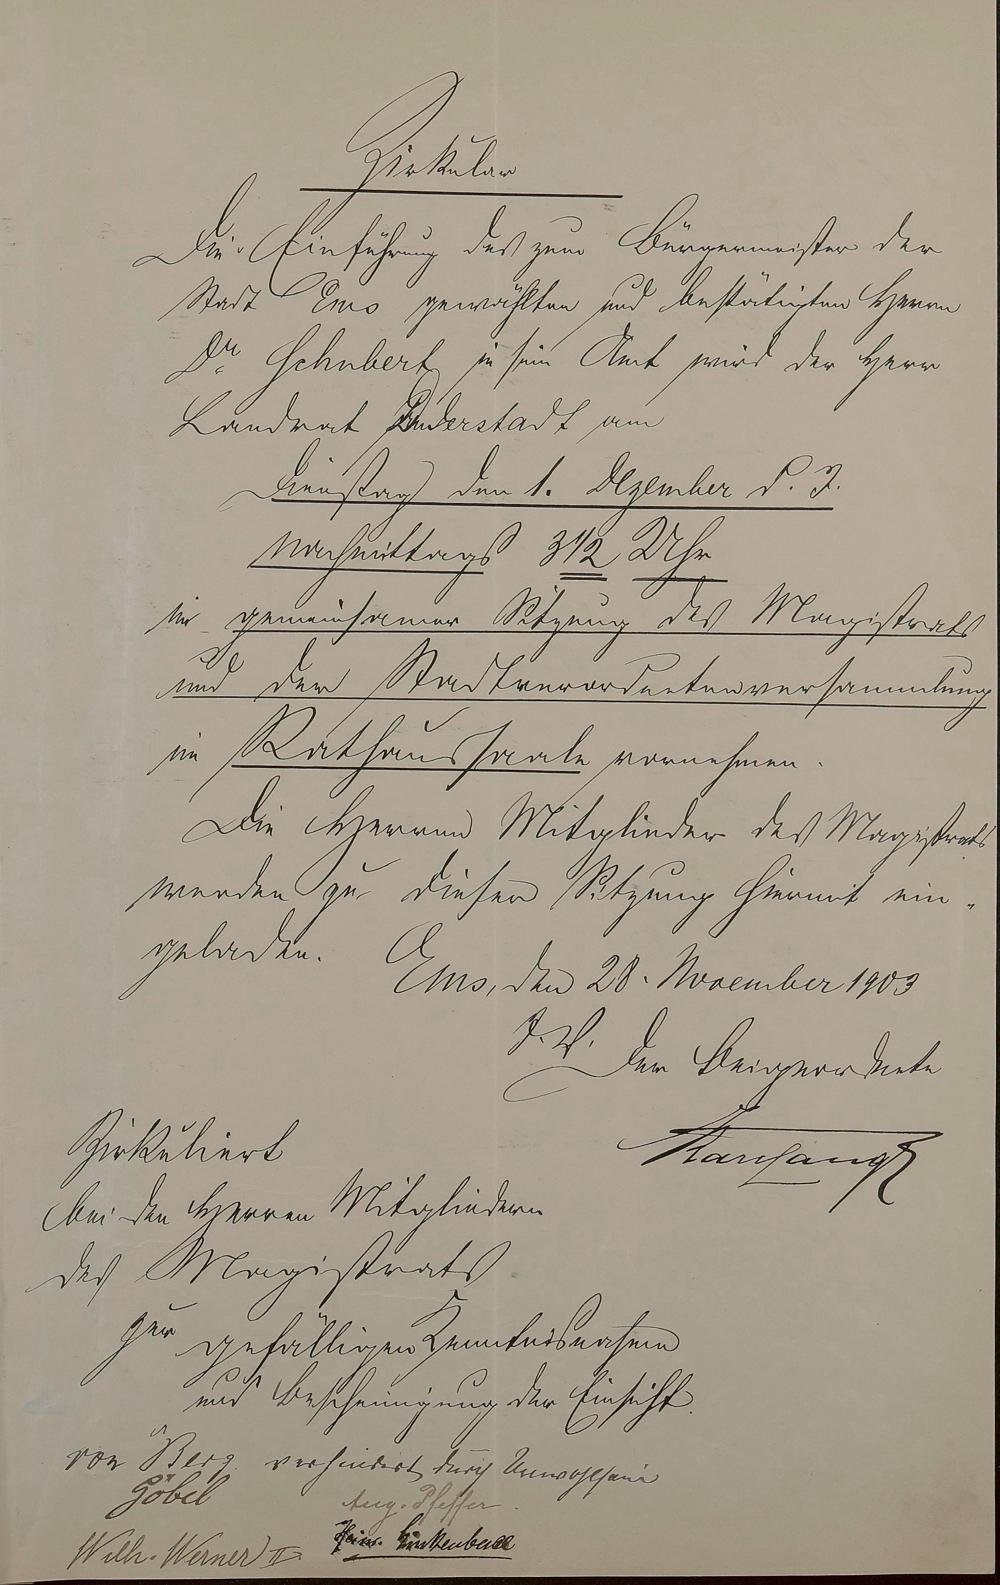 Zirkular
Die Einführung des zum Bürgermeister der
Stadt Ems gewählten und bestätigten Herrn
Dr. Schubert in sein Amt wird der Herr
Landrat Duderstadt am
Dienstag den 1. Dezember d. J.
Nachmittags 3 1/2 Uhr
in gemeinsamer Sitzung des Magistrats
und der Stadtverordnetenversammlung
im Rathaussaale vornehmen.
Die Herren Mitglieder des Magistrats
werden zu dieser Sitzung hiermit ein-
geladen.
Ems, den 28. November 1903
J. V.
Der Beigeordnete
Zirkuliert
bei den Herren Mitgliedern
des Magistrats
zur gefälligen Kenntnisnahme
und Bescheinigung der Einsicht.
von Berg verhindert durch Unwohlsein
Göbel
Aug. Pfeffer.
Wilh. Werner II.
Heinr. Linkenbach